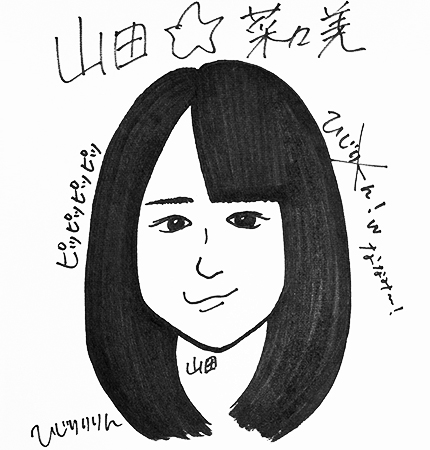 山田☆菜々美
ピッピッピッピッ
ん！w
ななみ〜！
山田
ひじりりりん